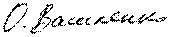 О. Вашленко